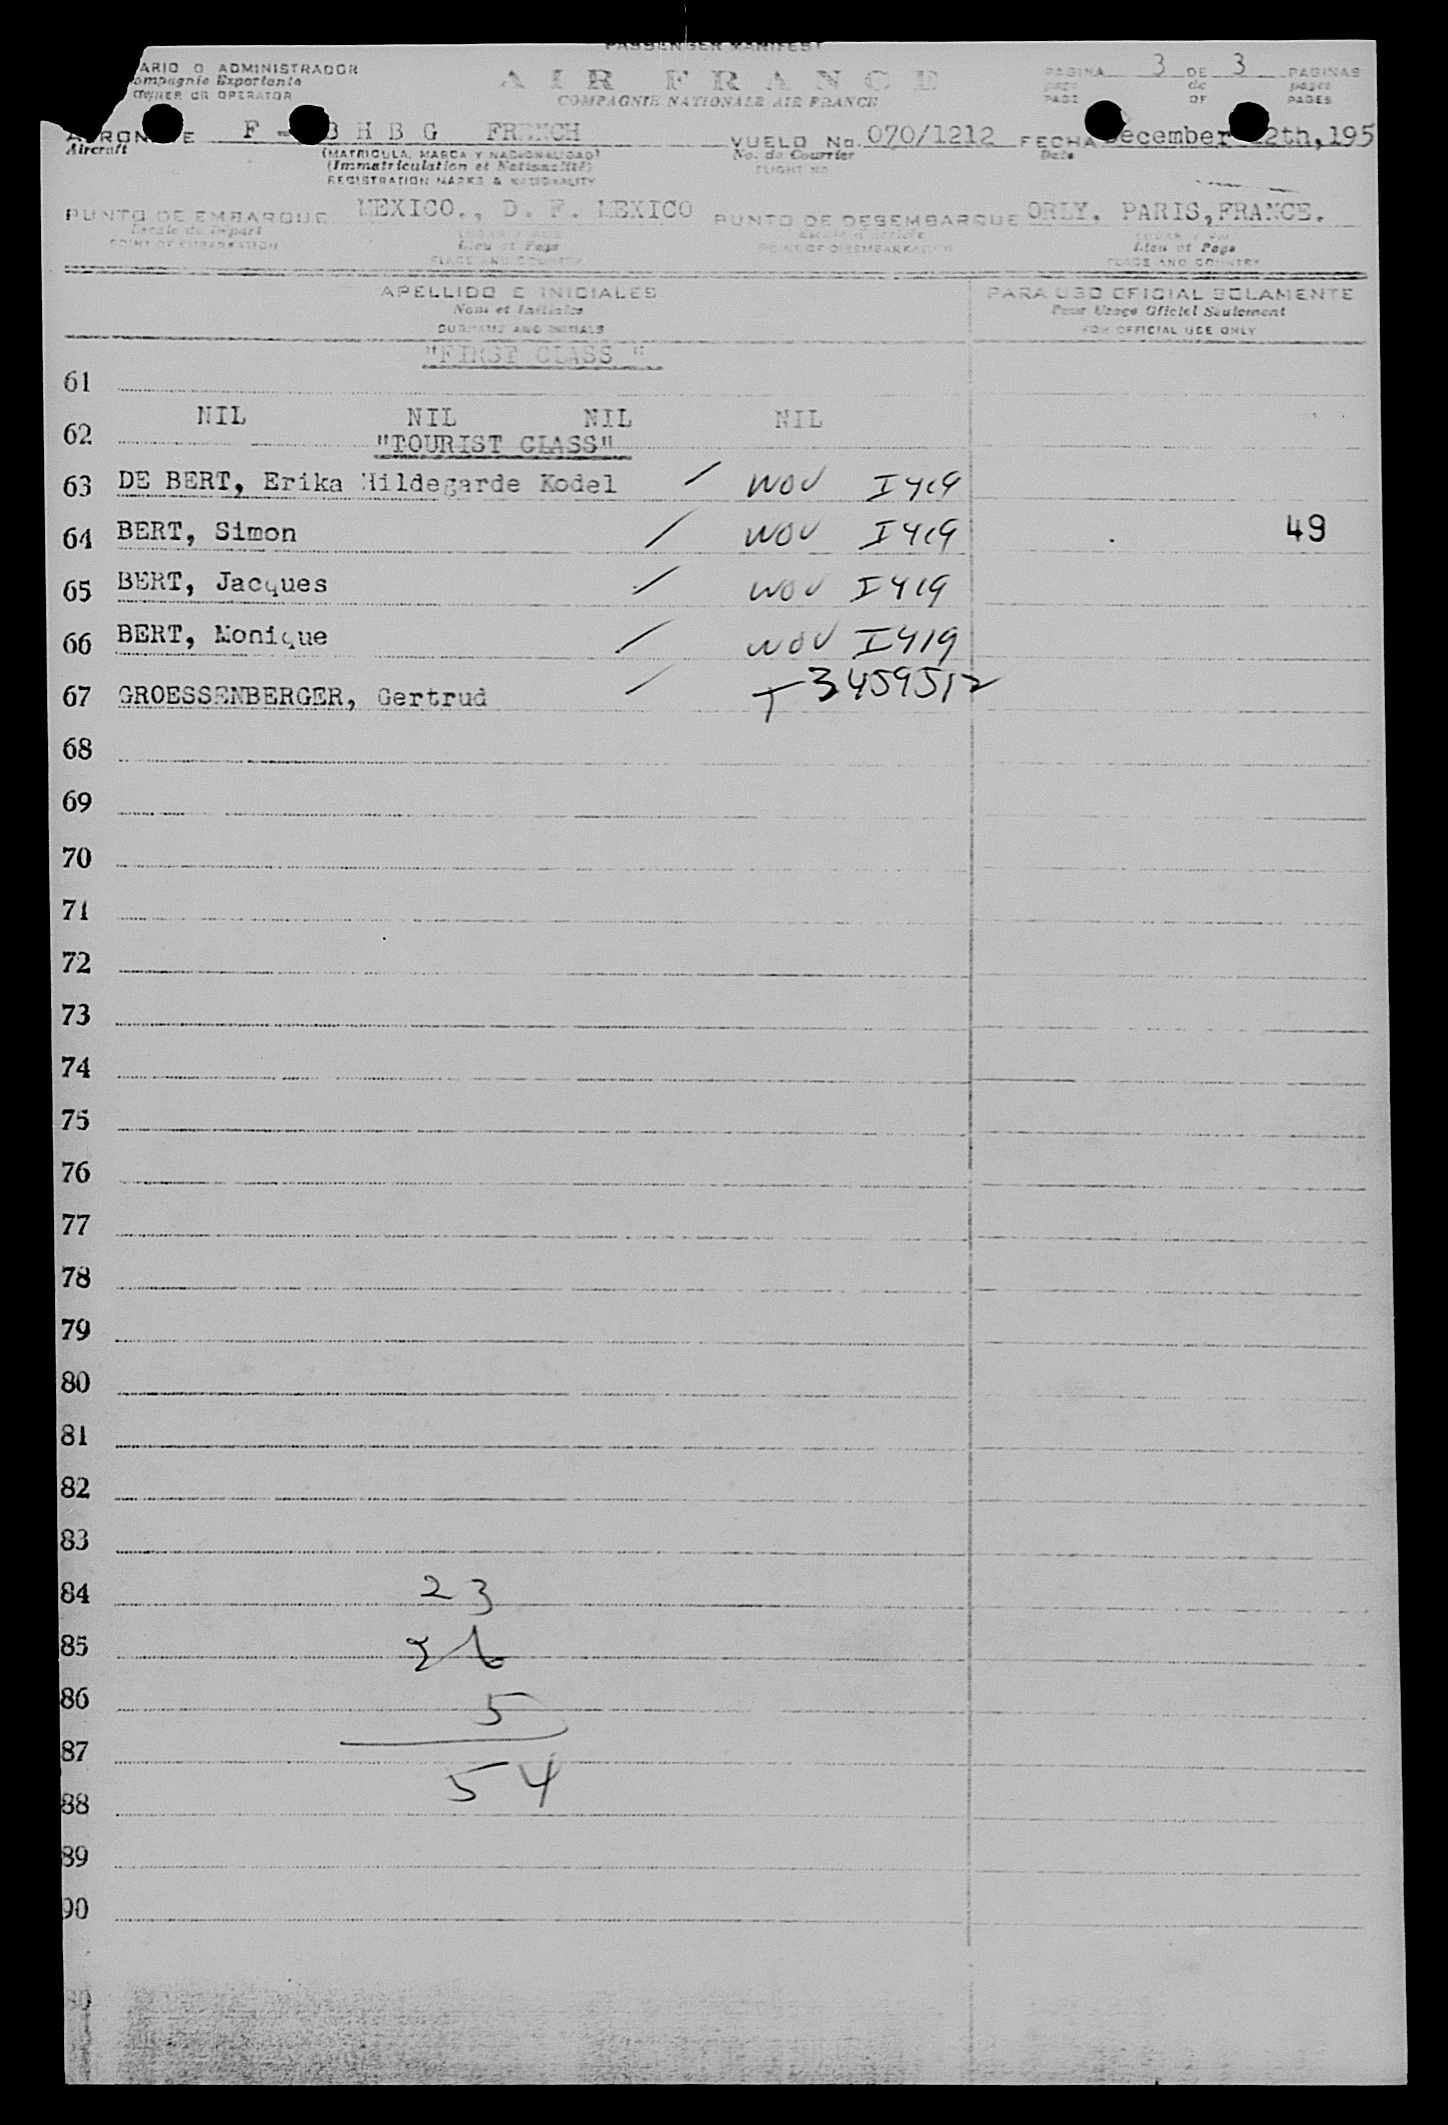 PASSENGER MANIFEST
ARIO O ADMINISTRADOR
ompagnie Exportante
OWNER OR OPERATOR
AIR FRANCE
COMPAGNIE NATIONALE AIR FRANCE
PAGINA 3 DE 3 PAGINAS
page de pages
PAGE OF PAGES
F - B H B G FRENCH
Aircraft
(MATRICULA, MARCA Y NACIONALIDAD)
(Immatriculation et Nationalité)
REGISTRATION MARKS & NATIONALITY
VUELO No. 070/1212 FECHA December 2th, 195
No. de Courrier Date
FLIGHT NO
PUNTO DE EMBARQUE MEXICO., D. F. MEXICO PUNTO DE DESEMBARQUE ORLY. PARIS, FRANCE.
Escale de Départ Lieu et Pays Escale d'arrivée Lieu et Pays
POINT OF EMBARKATION PLACE AND COUNTRY POINT OF DISEMBARKATION PLACE AND COUNTRY
APELLIDO E INICIALES PARA USO OFICIAL SOLAMENTE
Nom et Initiales Pour Usage Oficiel Seulement
SURNAME AND INITIALS FOR OFFICIAL USE ONLY
"FIRST CLASS "
61
NIL NIL NIL NIL
62
"TOURIST CLASS"
63 DE BERT, Erika Hildegarde Kodel / WOV I 419
64 BERT, Simon / WOV I 419 49
65 BERT, Jacques / WOV I 419
66 BERT, Monique / WOV I 419
67 GROESSENBERGER, Gertrud / T 3459512
68
69
70
71
72
73
74
75
76
77
78
79
80
81
82
83
84 23
85 26
86 5
87
54
88
89
90